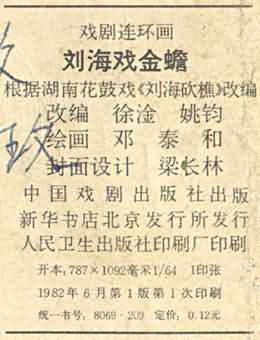 戏剧连环画
刘海戏金蟾
根据湖南花鼓戏《刘海砍樵》改编
改编 徐淦 姚钧
绘画 邓泰和
封面设计 梁长林
中国戏剧出版社出版
新华书店北京发行所发行
人民卫生出版社印刷厂印刷
开本,787×1092毫米1/64 1印张
1982年6月第1版第1次印刷
统一书号:8069·209 定价:0.12元